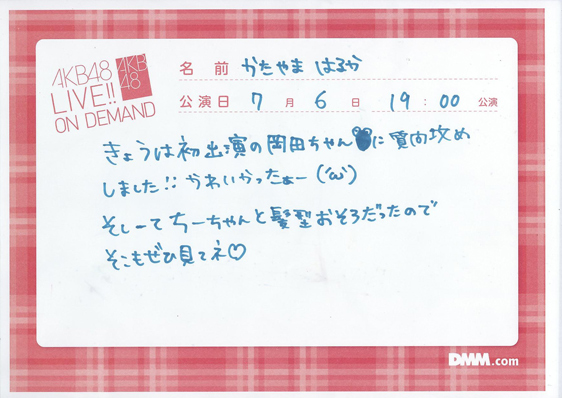 AKB48
LIVE!!
ON DEMAND
AKB
48
名前 かたやま はるか
公演日 7月 6日 19:00 公演
きょうは初出演の岡田ちゃんに質向攻め
しました!! かわいかったぁー('ω')
そしーてちーちゃんと髪型おそろだったので
そこもぜひ見てネ♡
DMM.com